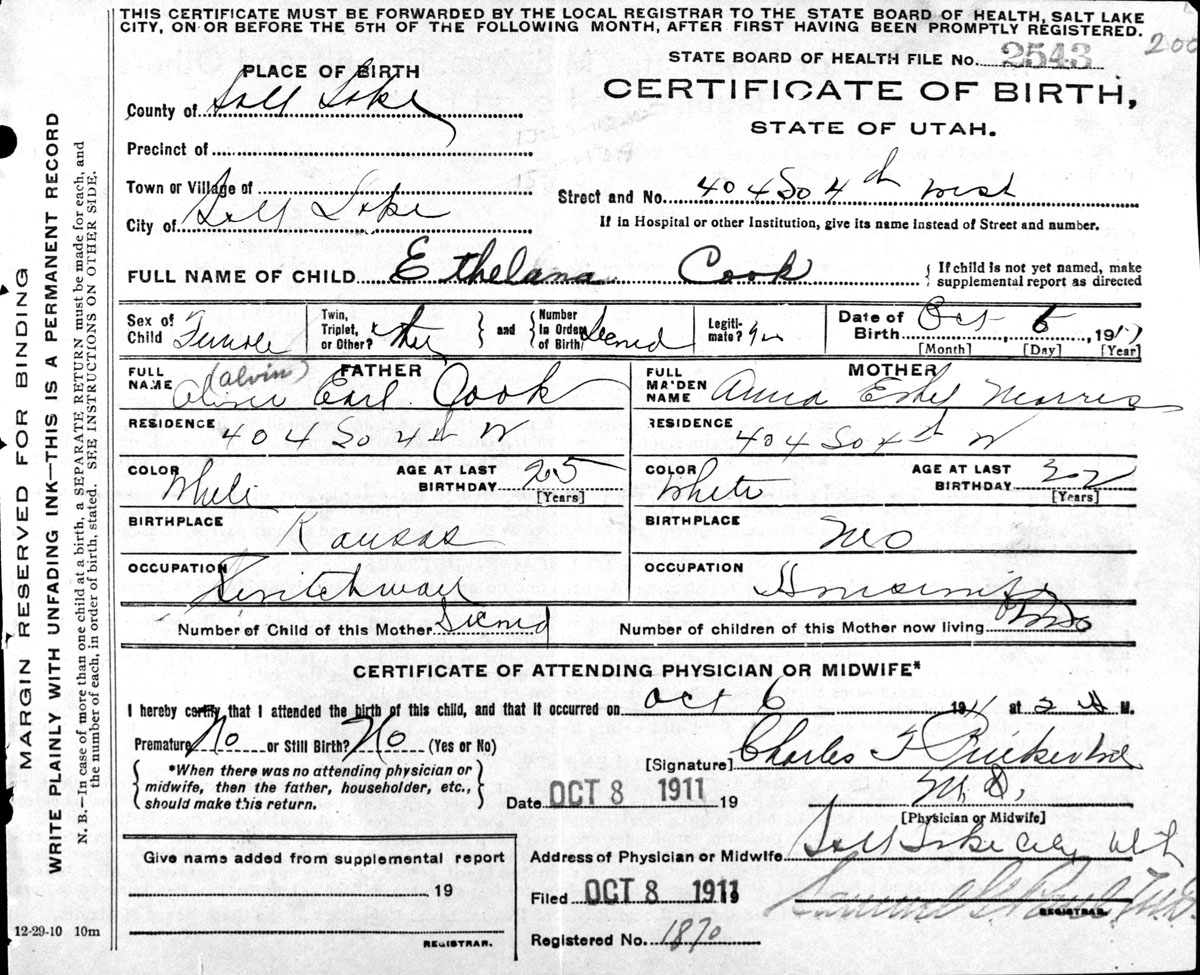 THIS CERTIFICATE MUST BE FORWARDED BY THE LOCAL REGISTRAR TO THE STATE BOARD OF HEALTH, SALT LAKE
CITY, ON OR BEFORE THE 5TH OF THE FOLLOWING MONTH, AFTER FIRST HAVING BEEN PROMPTLY REGISTERED.
200
STATE BOARD OF HEALTH FILE No. 2543
PLACE OF BIRTH
CERTIFICATE OF BIRTH,
STATE OF UTAH.
County of Salt Lake
Precinct of
Town or Village of
Street and No. 404 So 4th West
City of Salt Lake
If in Hospital or other Institution, give its name instead of Street and number.
FULL NAME OF CHILD Ethelana Cook
{ If child is not yet named, make
supplemental report as directed
Sex of Child Female
Twin, Triplet, or Other? } and { Number In Order of Birth Second
Legitimate? Yes
Date of Birth Oct 6, 1911
[Month] [Day] [Year]
FATHER
FULL NAME (Alvin) Earl Cook
MOTHER
FULL MAIDEN NAME Anna Morris
RESIDENCE 404 So 4th W
RESIDENCE 404 So 4th W
COLOR White
AGE AT LAST BIRTHDAY 25 [Years]
COLOR White
AGE AT LAST BIRTHDAY 22 [Years]
BIRTHPLACE Kansas
BIRTHPLACE Mo
OCCUPATION Switchman
OCCUPATION Housewife
Number of Child of this Mother Second
Number of children of this Mother now living Two
CERTIFICATE OF ATTENDING PHYSICIAN OR MIDWIFE*
I hereby certify that I attended the birth of this child, and that it occurred on Oct 6 1911 at 2 A M.
Premature No or Still Birth? No (Yes or No)
[Signature] Charles F
M.D.
[Physician or Midwife]
{ *When there was no attending physician or
midwife, then the father, householder, etc.,
should make this return. }
Date OCT 8 1911 19
Give name added from supplemental report
19
REGISTRAR.
Address of Physician or Midwife Salt Lake City Ut
Filed OCT 8 1911
REGISTRAR.
Registered No. 1870
12-29-10 10m
MARGIN RESERVED FOR BINDING
WRITE PLAINLY WITH UNFADING INK—THIS IS A PERMANENT RECORD
N. B.—In case of more than one child at a birth, a SEPARATE RETURN must be made for each, and
the number of each, in order of birth, stated. SEE INSTRUCTIONS ON OTHER SIDE.